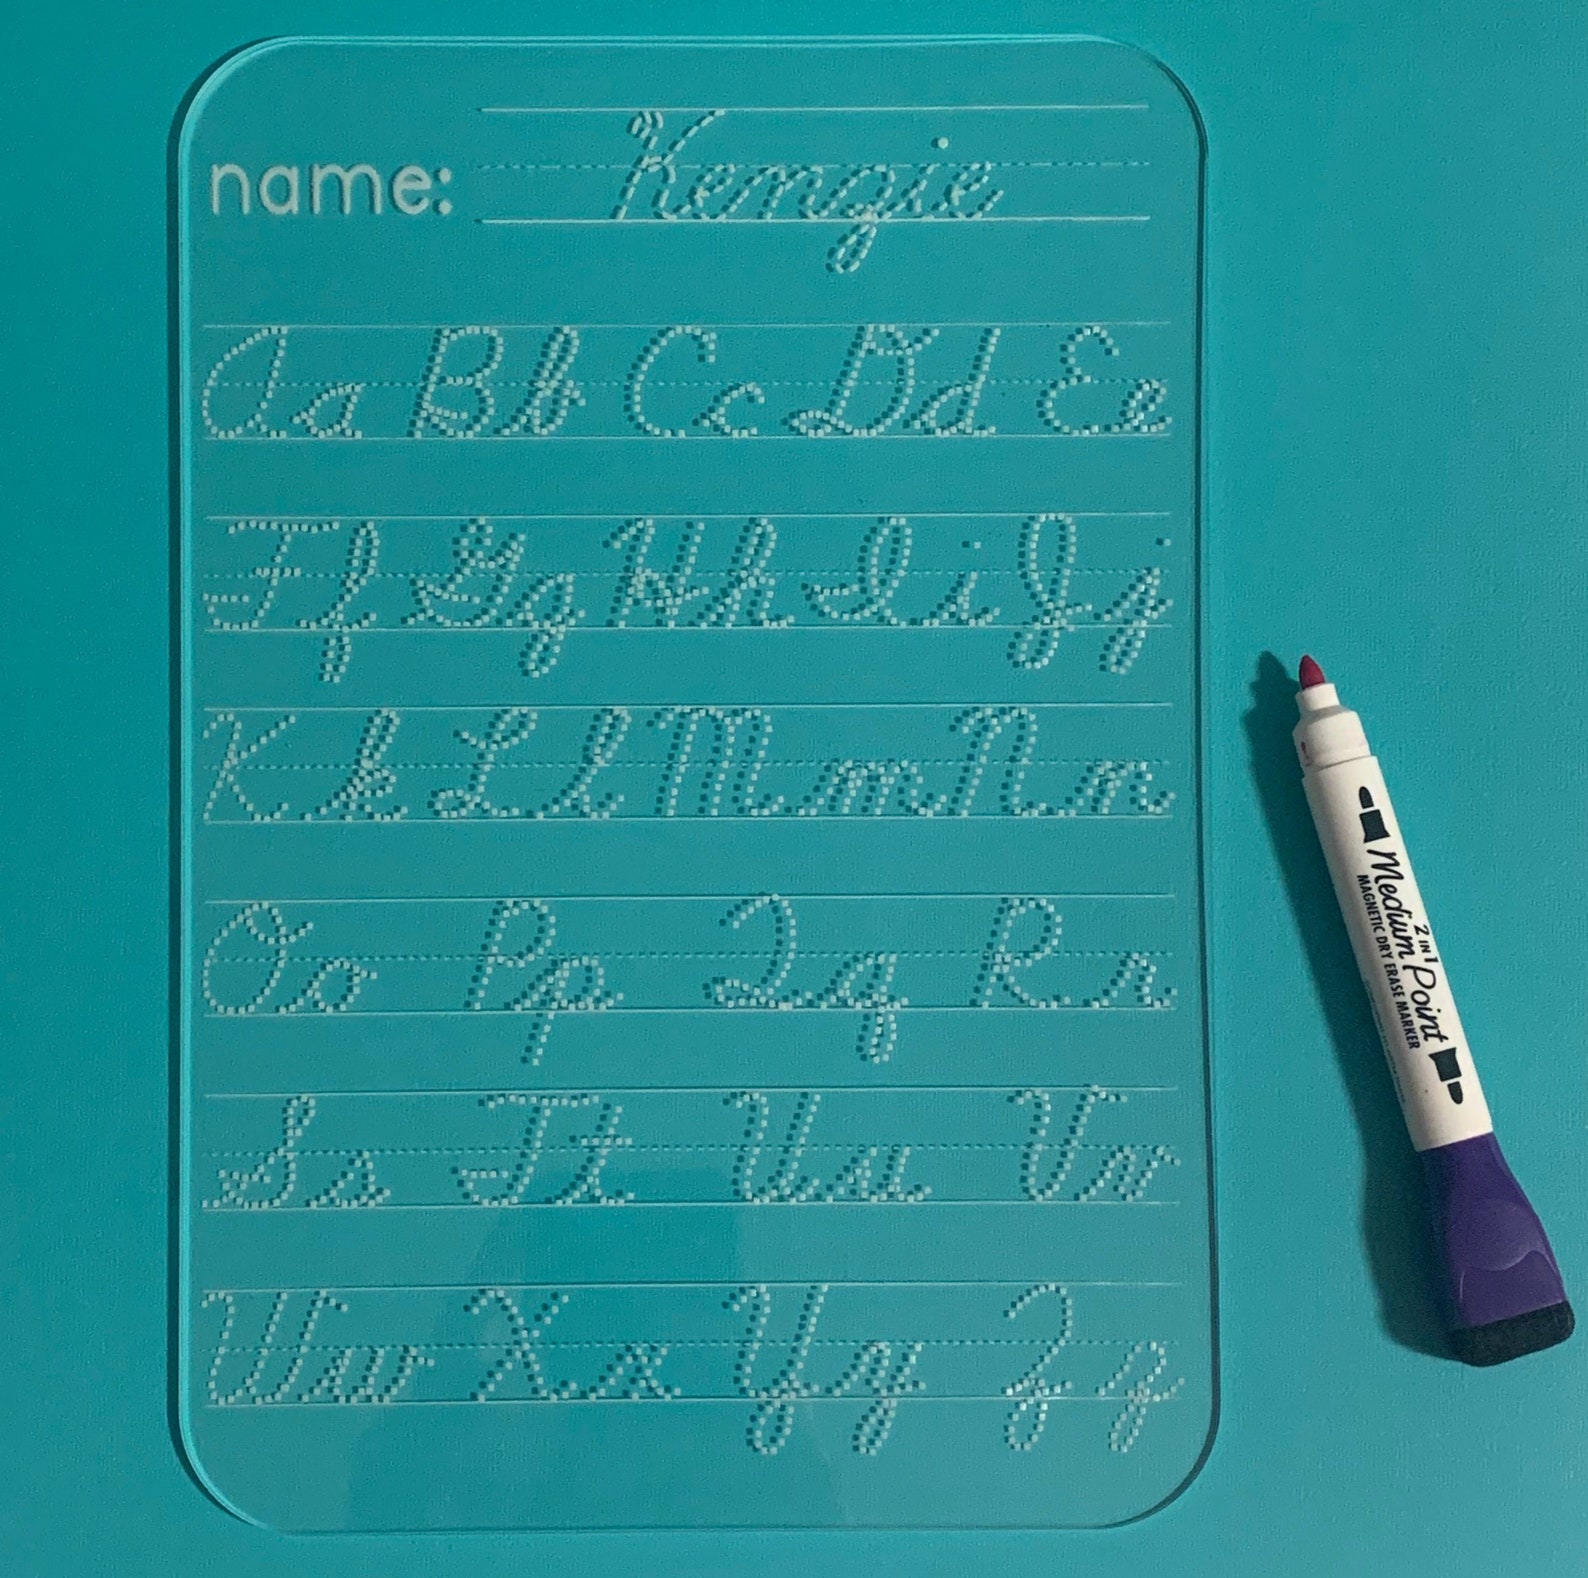 name: Kenzie
Aa Bb Cc Dd Ee
Ff Gg Hh Ii Jj
Kk Ll Mm Nn
Oo Pp Qq Rr
Ss Tt Uu Vv
Ww Xx Yy Zz
2 IN 1
Medium Point
MAGNETIC DRY ERASE MARKER